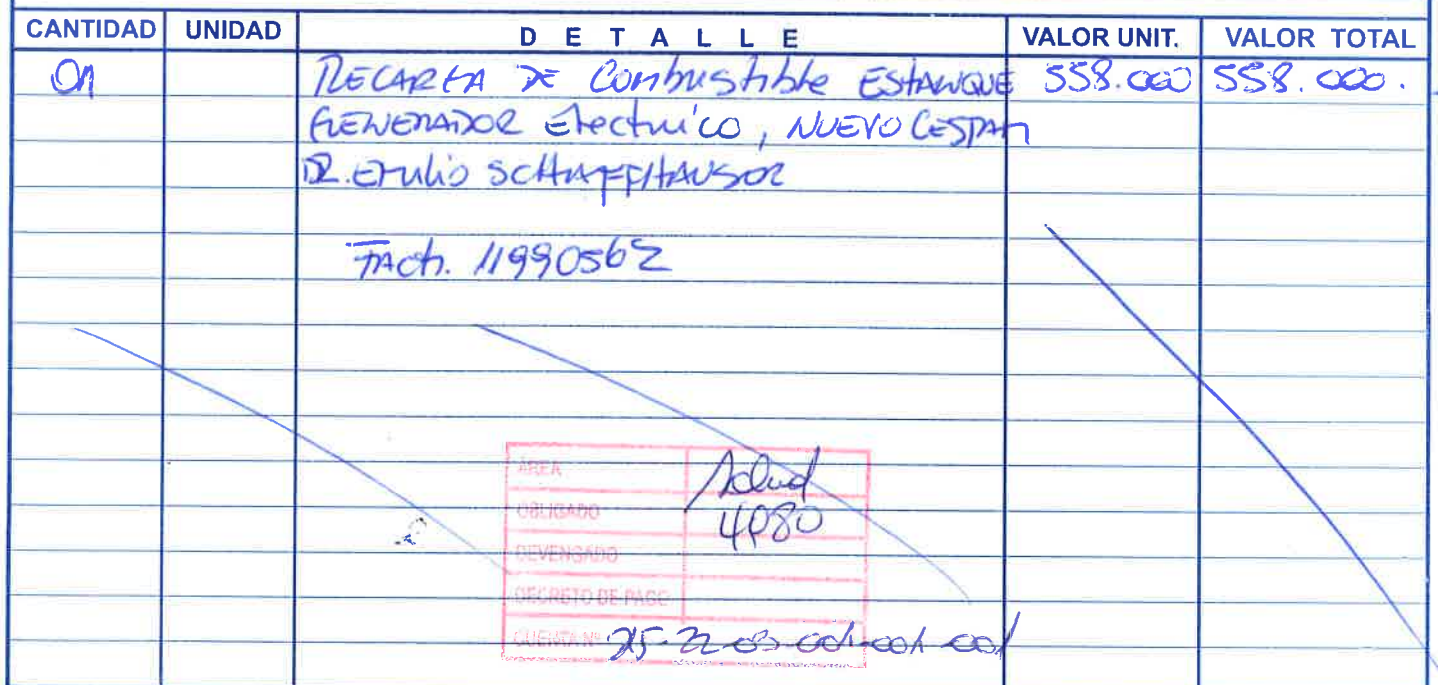 CANTIDAD UNIDAD DETALLE VALOR UNIT. VALOR TOTAL
01 RECARGA DE Combustible ESTANQUE 558.000 558.000.
GENERADOR Electrico, NUEVO CESFAM
DR. Emilio SCHAFFHAUSOR
FACT. 11990562
AREA Salud
OBLIGADO 4080
DEVENGADO
DECRETO DE PAGO
CUENTA Nº 215-22-03-001-001-001